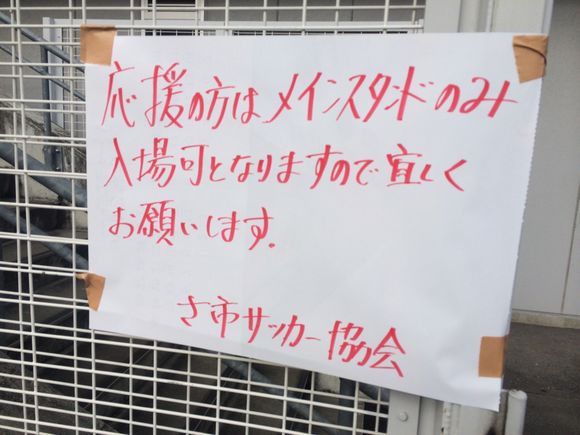 応援の方はメインスタンドのみ
入場可となりますので宜しく
お願いします.
さ市サッカー協会